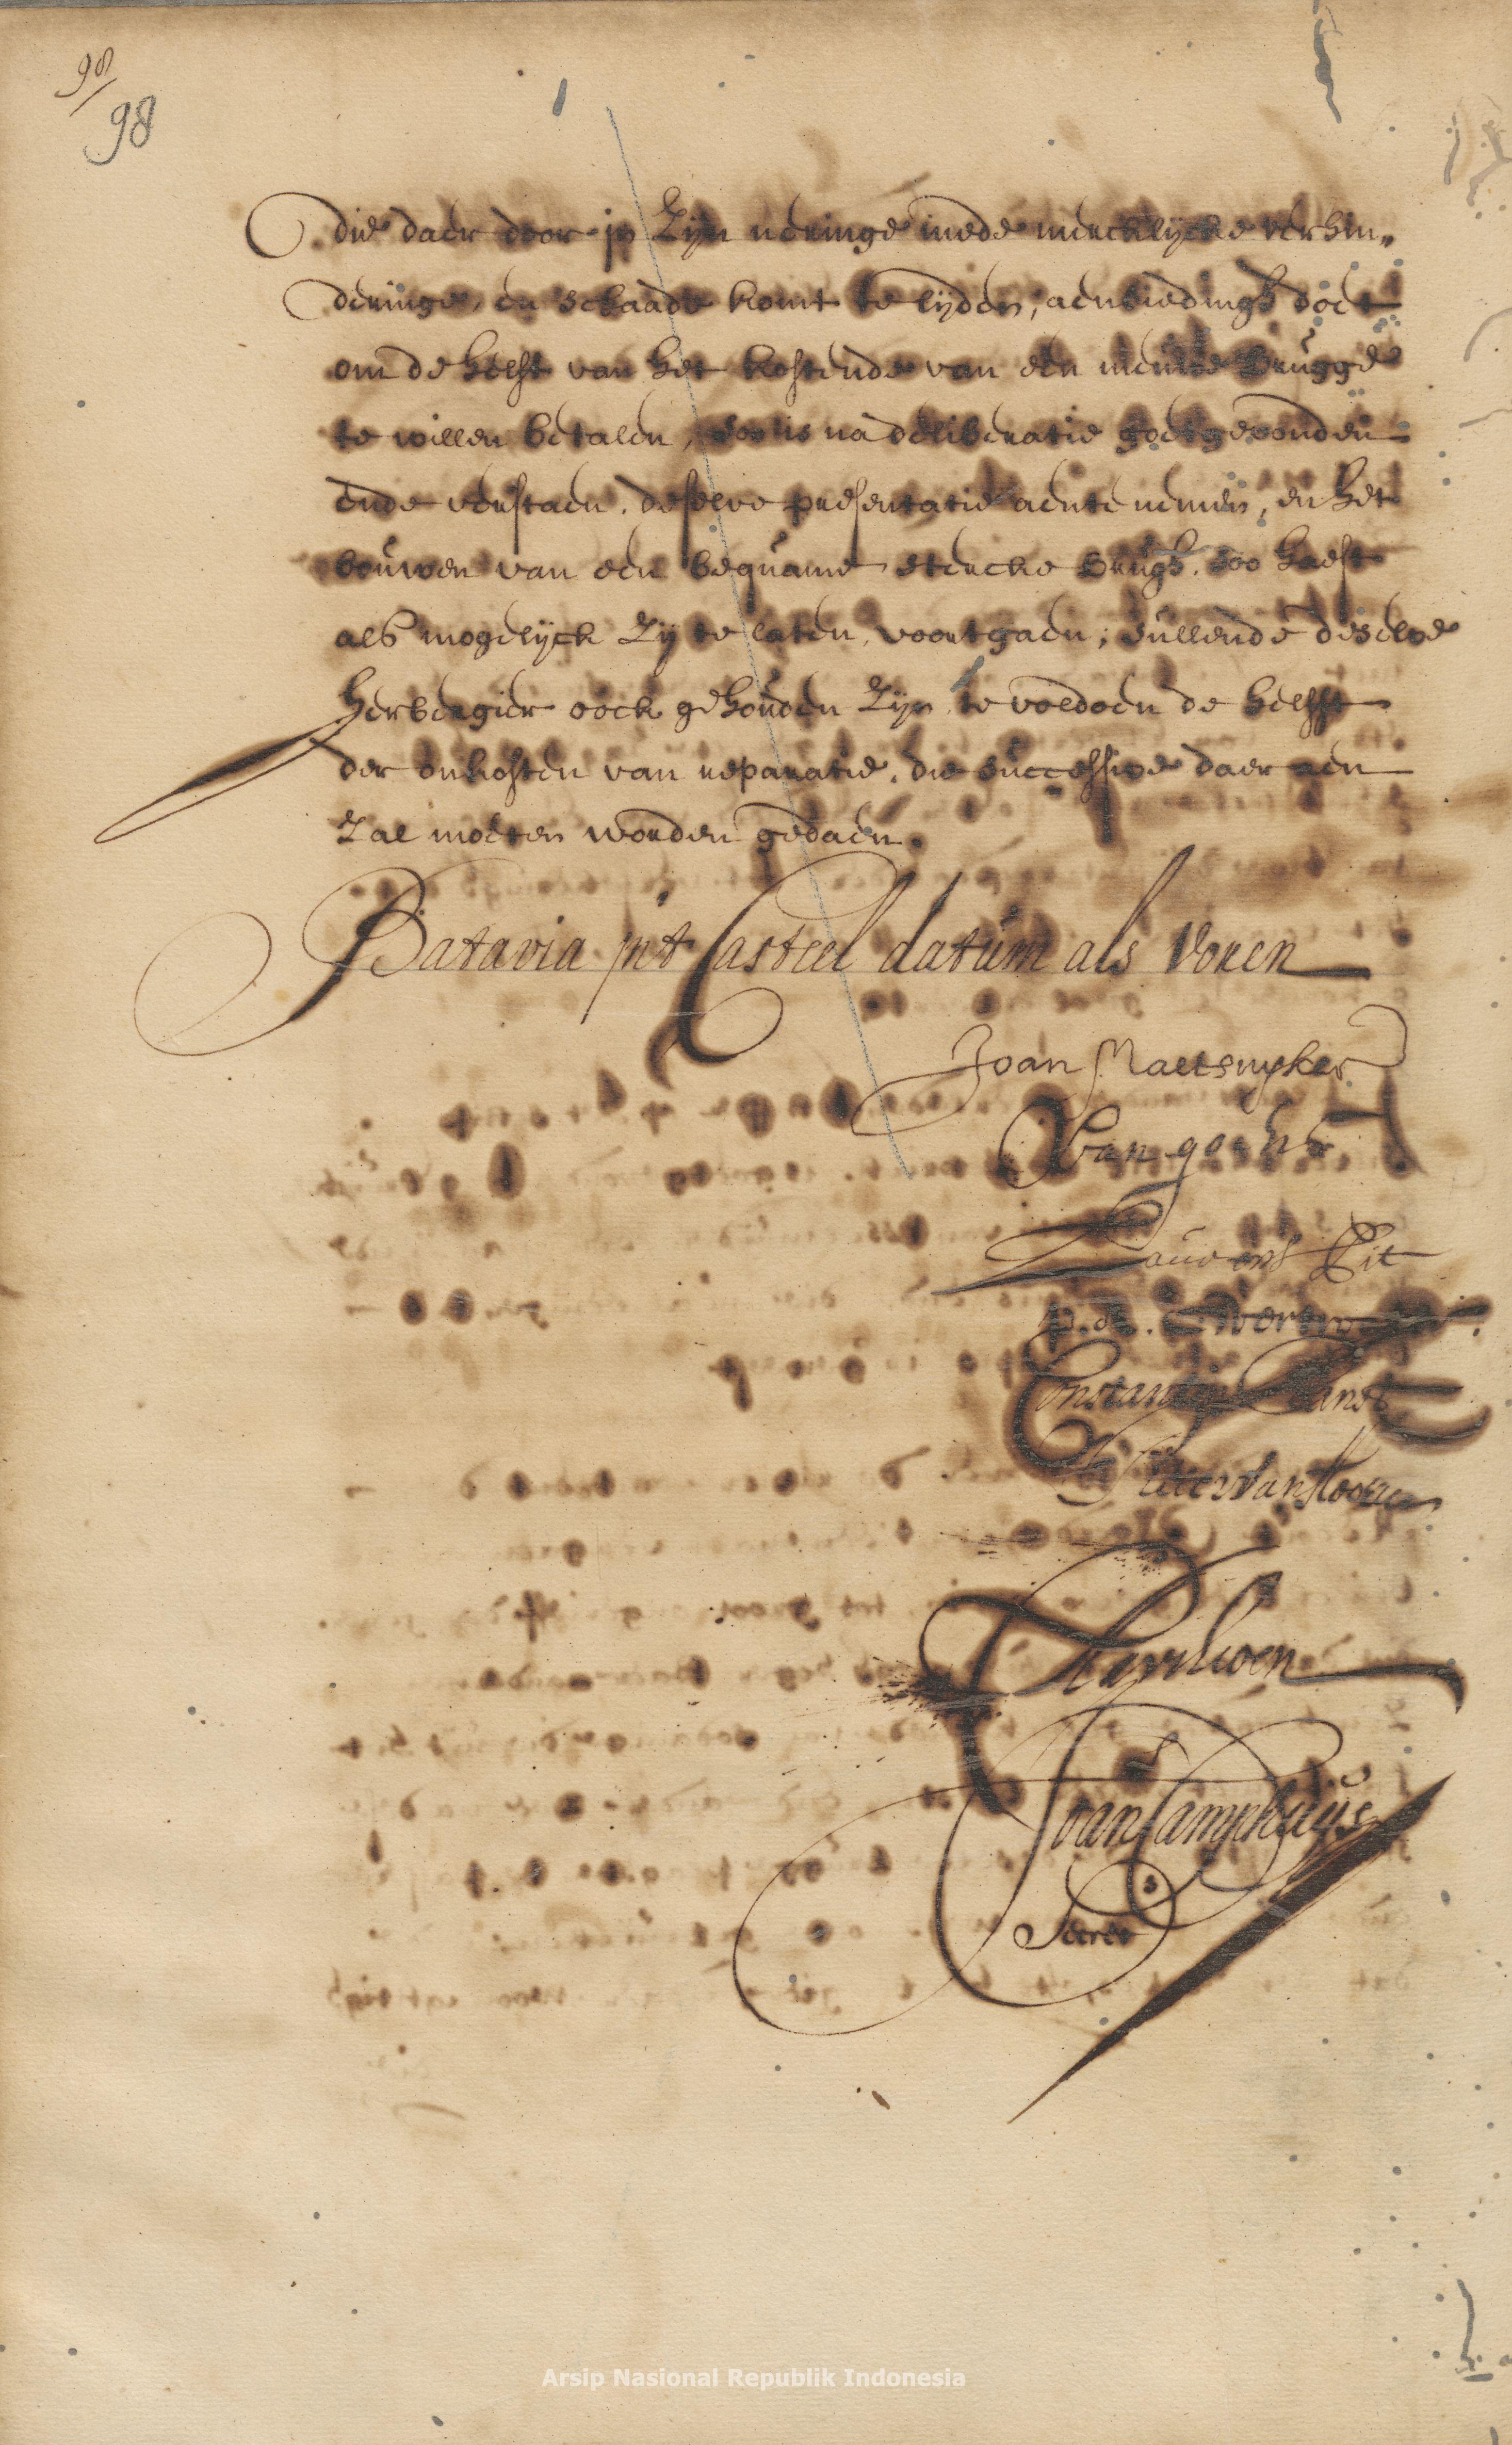 98
98
die daer door in Zijn neringe mede mercklijcke verhin„
deringe, en schaade komt te lijden, aenbiedingh doet
om de helft van het kostende van een nieuwe brugge
te willen betalen, soo is na deliberatie goetgevonden
ende verstaen, deselve presentatie aente nemen, en het
bouwen van een bequame stercke brugh, soo haest
als mogelijck Zij te laten voortgaen, sullende deselve
herbergier oock gehouden Zijn te voldoen de helfft
der onkosten van reparatie, die successive daer aen
Zal moeten worden gedaen.
Batavia int Casteel datum als voren
Joan Maetsuyker
Van goens
Laurens Pit
Constantin Ranst
Pieter van Hoorn
Joan Camphuys
Secret
Arsip Nasional Republik Indonesia